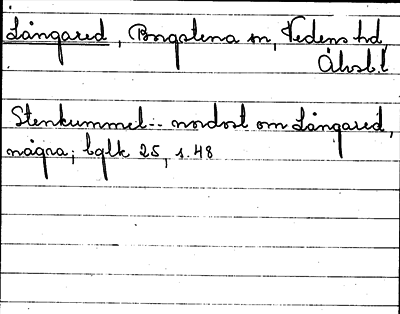 Långared, Borgstena sn, Vedens hd,
Älvsb.l
Stenkummel... nordost om Långared,
några; bglk 25, s. 48